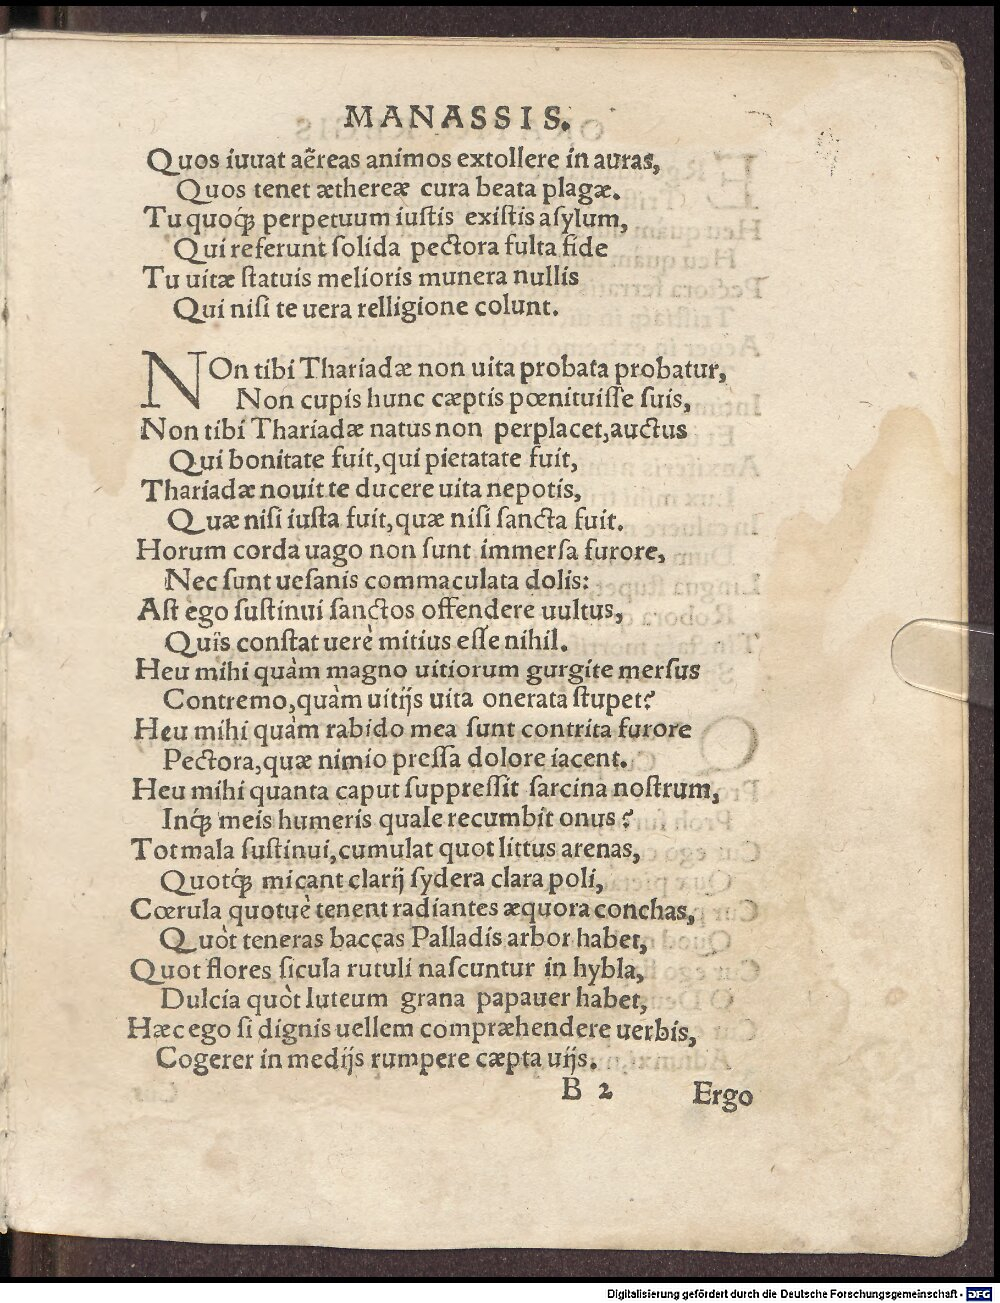 MANASSIS.
Quos iuuat aëreas animos extollere in auras,
Quos tenet æthereæ cura beata plagæ.
Tu quoq́ꝫ perpetuum iustis existis asylum,
Qui referunt solida pectora fulta fide
Tu uitæ statuis melioris munera nullis
Qui nisi te uera relligione colunt.
NOn tibi Thariadæ non uita probata probatur,
Non cupis hunc cæptis pœnituisse suis,
Non tibi Thariadæ natus non perplacet, auctus
Qui bonitate fuit, qui pietatate fuit,
Thariadæ nouit te ducere uita nepotis,
Quæ nisi iusta fuit, quæ nisi sancta fuit.
Horum corda uago non sunt immersa furore,
Nec sunt uesanis commaculata dolis:
Ast ego sustinui sanctos offendere uultus,
Quïs constat uerè mitius esse nihil.
Heu mihi quàm magno uitiorum gurgite mersus
Contremo, quàm uitijs uita onerata stupet?
Heu mihi quàm rabido mea sunt contrita furore
Pectora, quæ nimio pressa dolore iacent.
Heu mihi quanta caput suppressit sarcina nostrum,
Inq́ꝫ meis humeris quale recumbit onus?
Tot mala sustinui, cumulat quot littus arenas,
Quotq́ꝫ micant clarij sydera clara poli,
Cœrula quotuè tenent radiantes æquora conchas,
Quòt teneras baccas Palladis arbor habet,
Quot flores sicula rutuli nascuntur in hybla,
Dulcia quòt luteum grana papauer habet,
Hæc ego si dignis uellem compræhendere uerbis,
Cogerer in medijs rumpere cæpta uijs.
B 2 Ergo
Digitalisierung gefördert durch die Deutsche Forschungsgemeinschaft - DFG